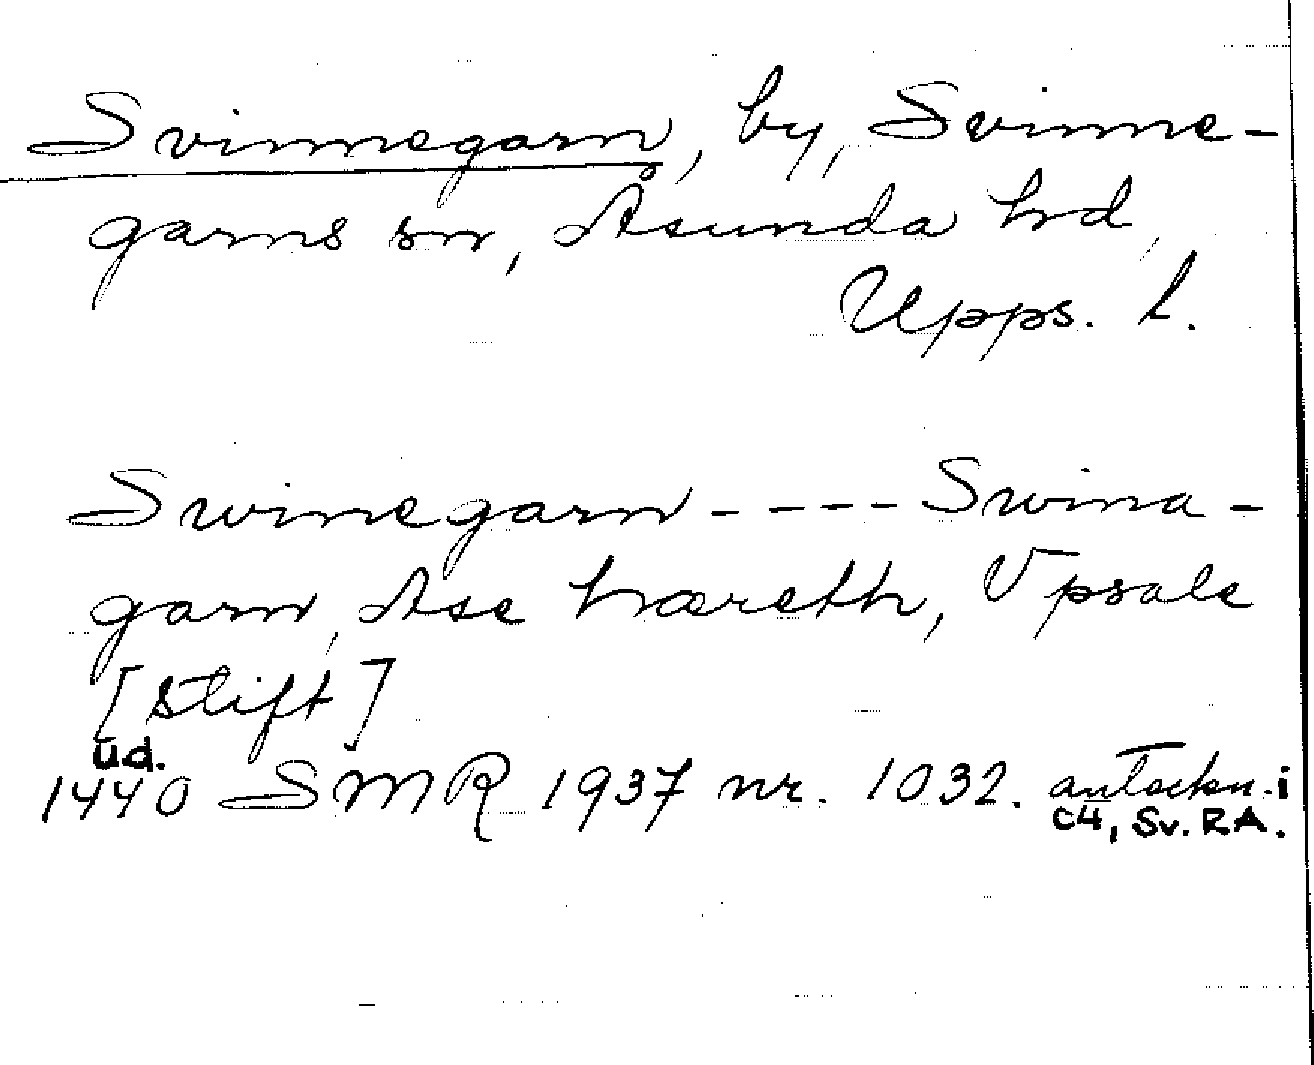 Svinnegarn, by, Svinne-
garns sn, Åsunda hd,
Upps. l.
Swinegarn - - - - Swina-
garn, Ase hæreth, Vpsale
[stift]
u.d.
1440 SMR 1937 nr. 1032. anteckn. i
C4, Sv. RA.